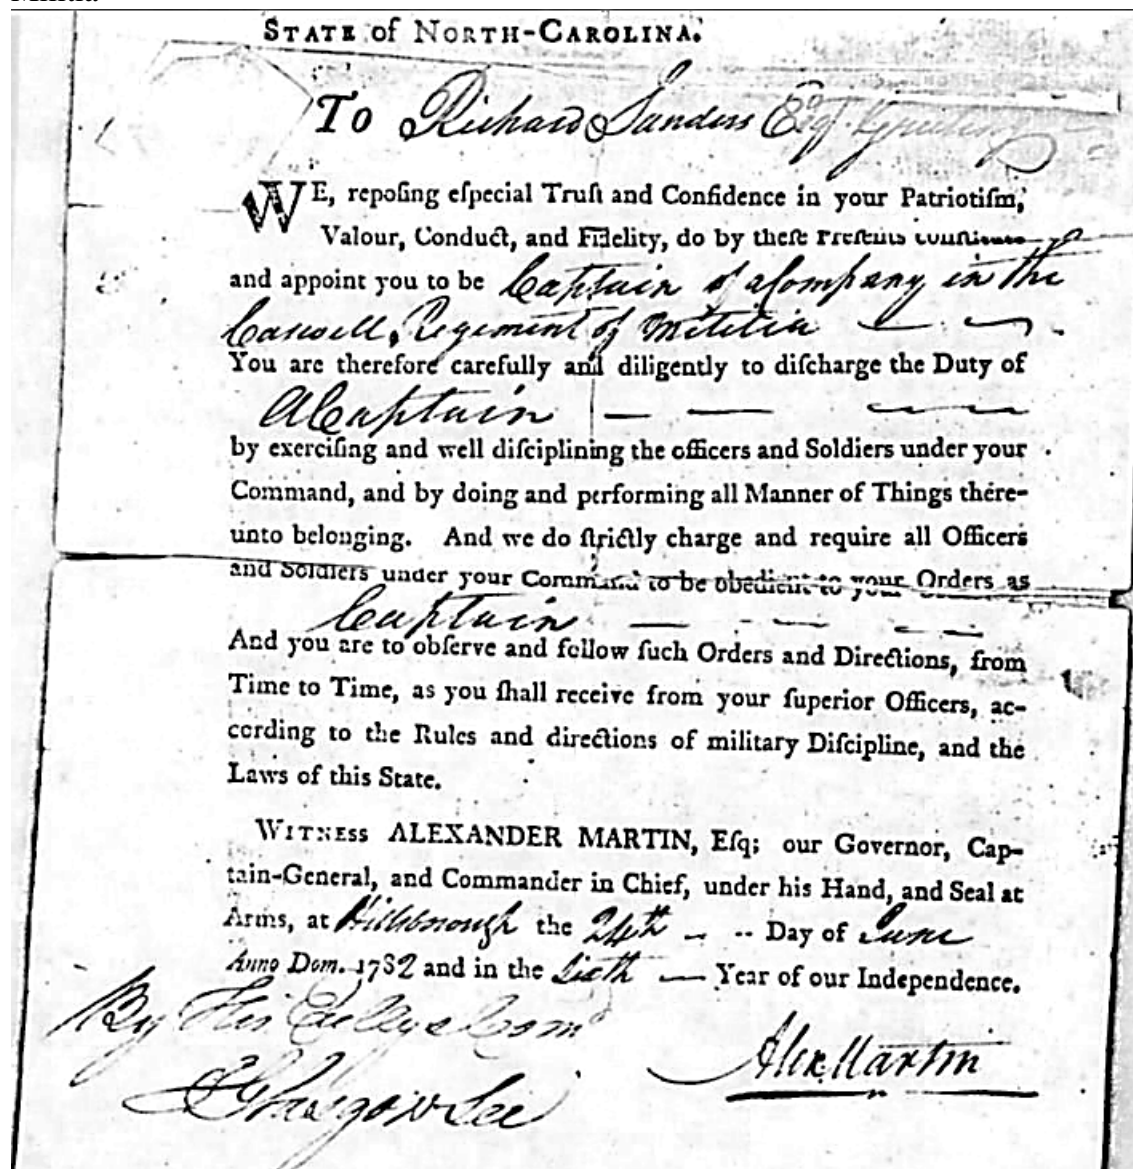 STATE of NORTH-CAROLINA.
To Richard Sanders Esqr
WE, repoſing eſpecial Truſt and Confidence in your Patriotiſm,
Valour, Conduct, and Fidelity, do by theſe Preſents conſtitute
and appoint you to be Captain of a Company in the
Caswell Regiment of Militia
You are therefore carefully and diligently to diſcharge the Duty of
A Captain
by exerciſing and well diſciplining the officers and Soldiers under your
Command, and by doing and performing all Manner of Things there-
unto belonging. And we do ſtrictly charge and require all Officers
and Soldiers under your Command to be obedient to your Orders as
Captain
And you are to obſerve and follow ſuch Orders and Directions, from
Time to Time, as you ſhall receive from your ſuperior Officers, ac-
cording to the Rules and directions of military Diſcipline, and the
Laws of this State.
WITNESS ALEXANDER MARTIN, Eſq; our Governor, Cap-
tain-General, and Commander in Chief, under his Hand, and Seal at
Arms, at Hillsborough the 24th Day of June
Anno Dom. 1782 and in the Sixth Year of our Independence.
By His Exellys Comd
Alex. Martin
J Glasgow Sec